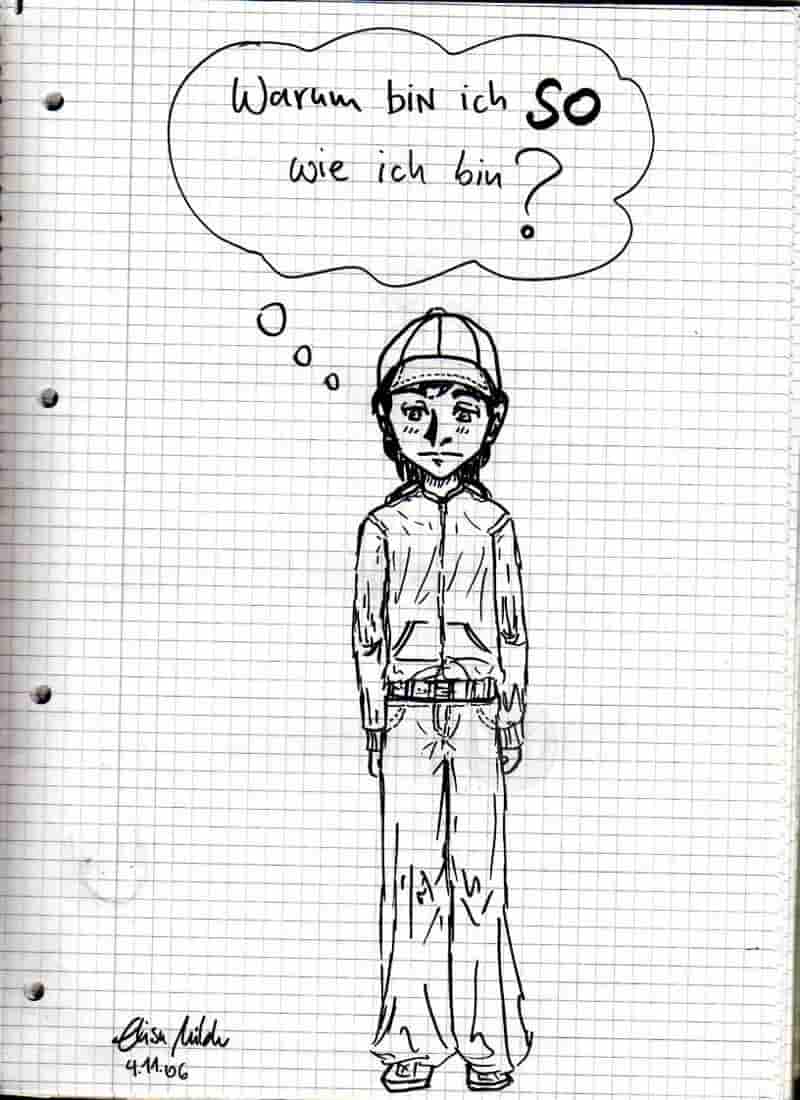 Warum bin ich SO
wie ich bin?
4.11.06